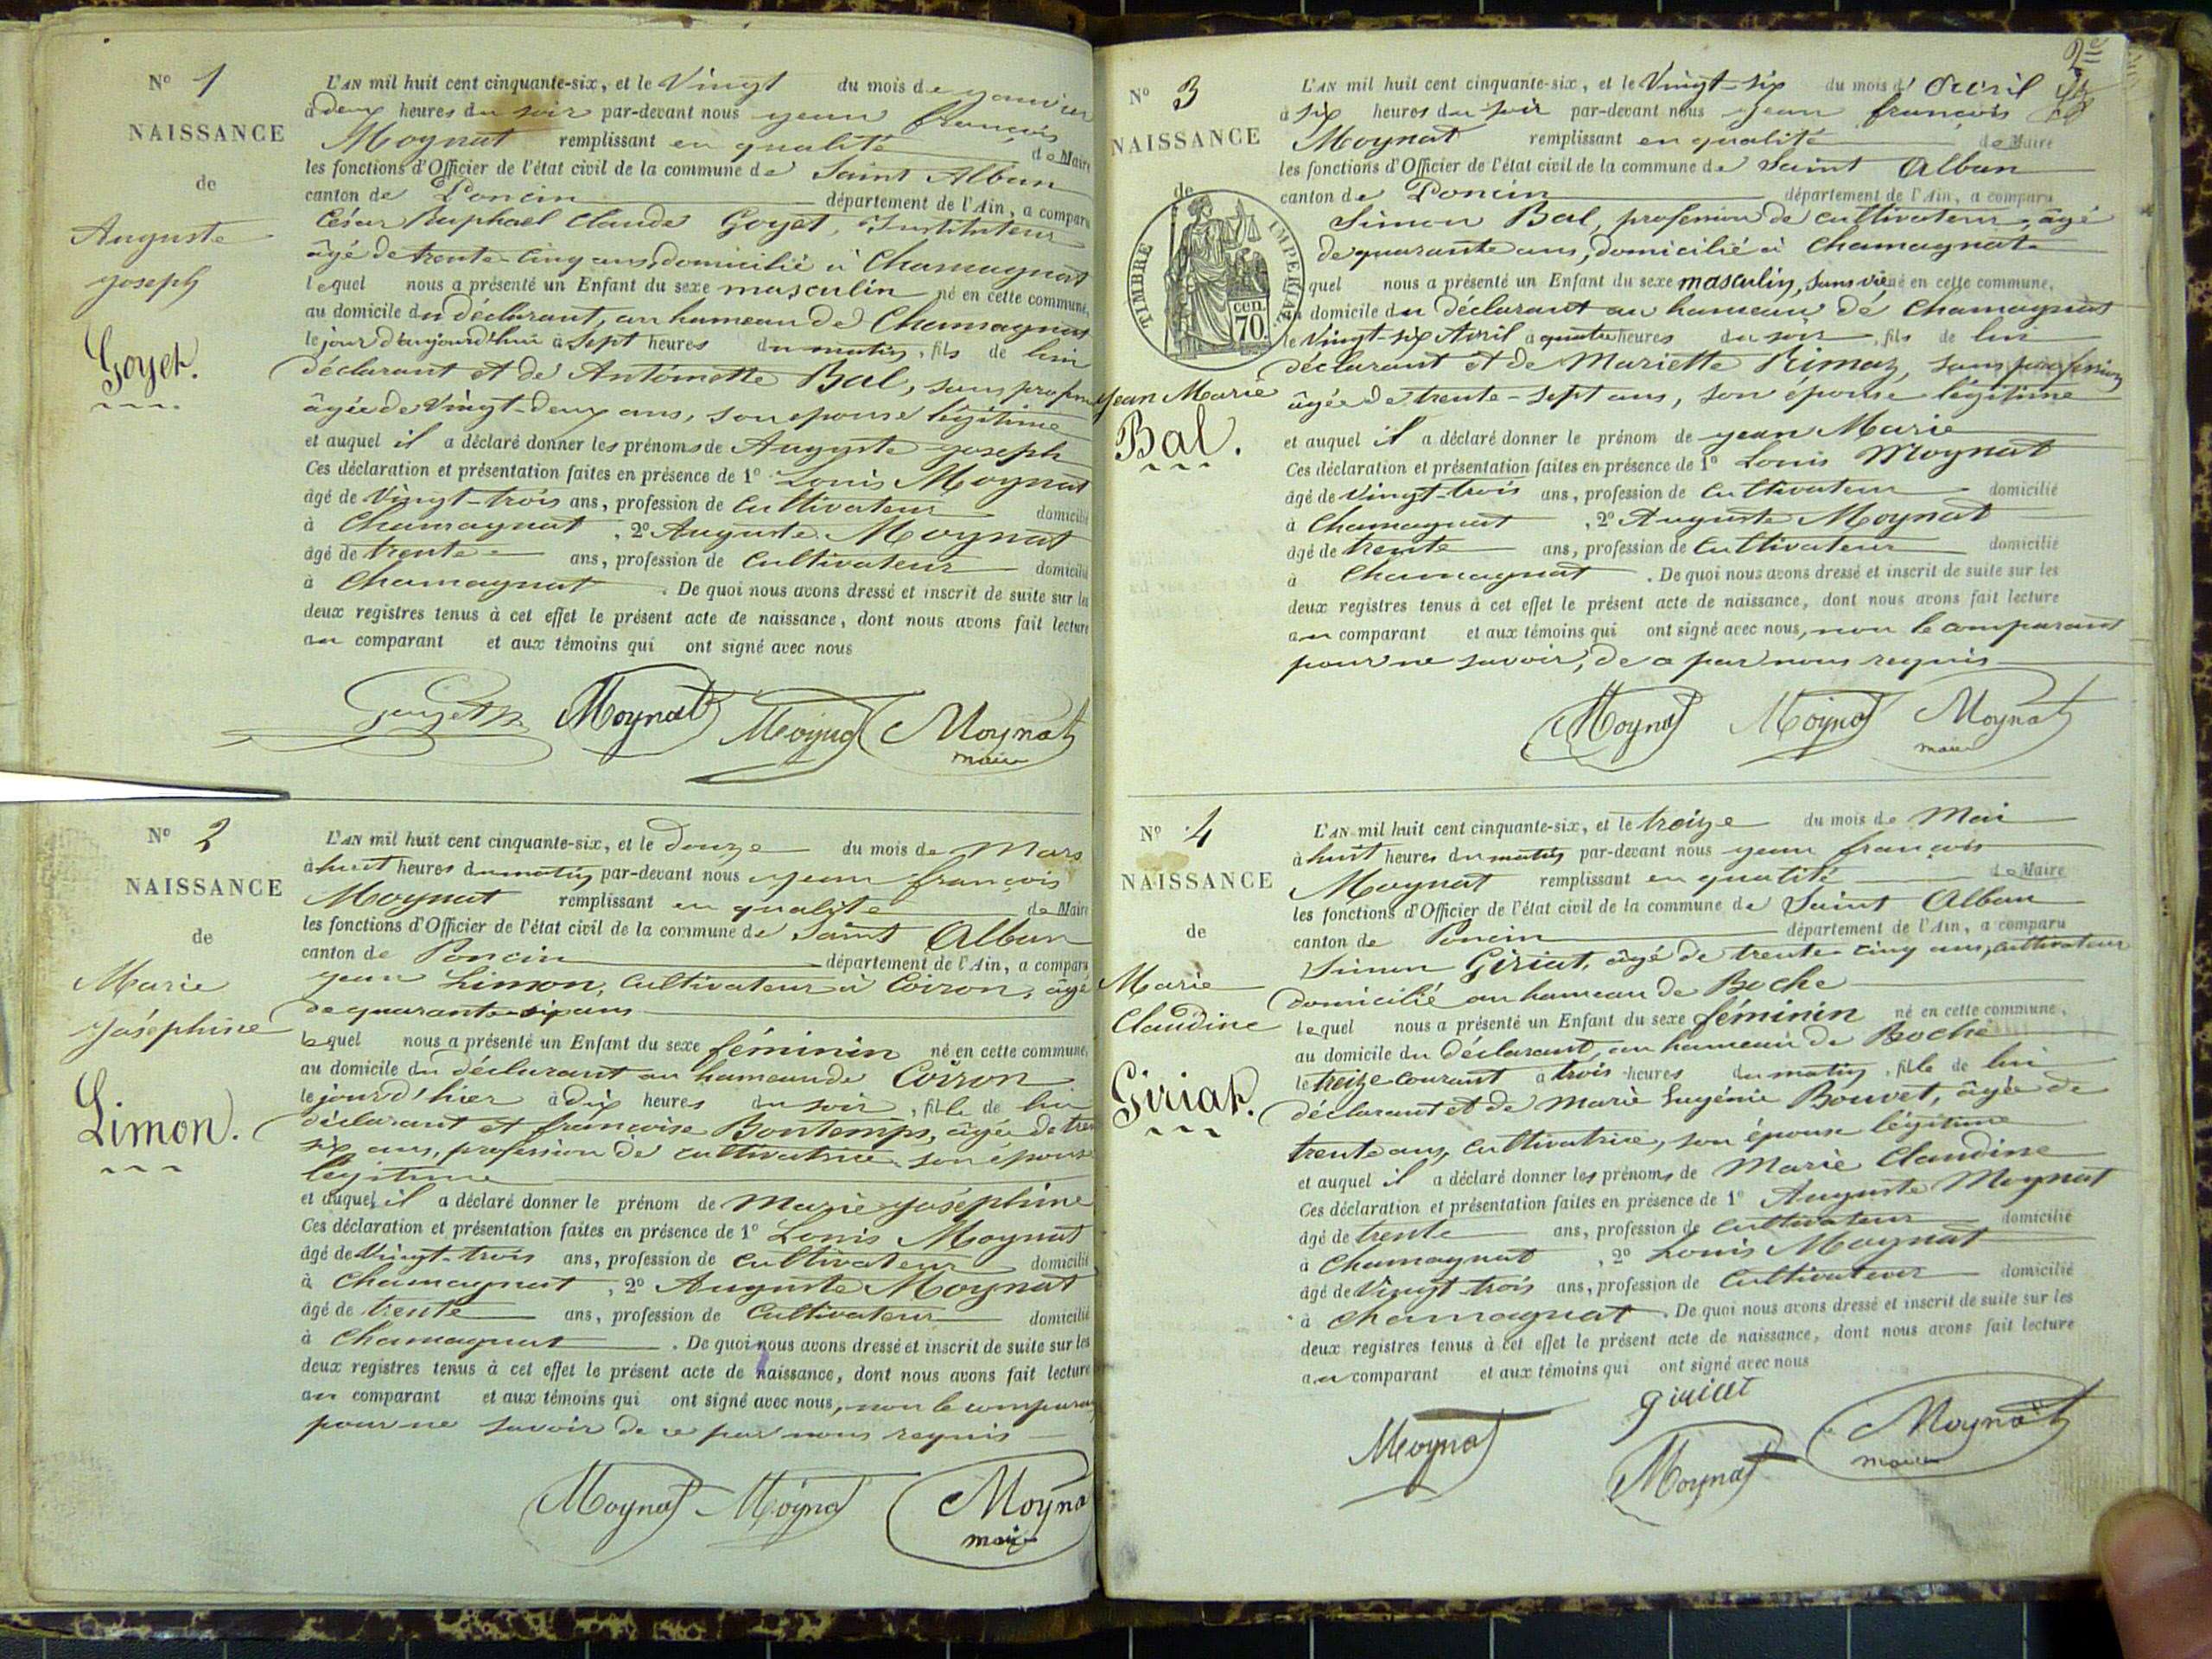 N° 1
NAISSANCE
de
Auguste
joseph
Goyet.
L'AN mil huit cent cinquante-six, et le Vingt du mois de janvier
à deux heures du soir par-devant nous jean françois
Moynat remplissant en qualité de Maire
les fonctions d'Officier de l'état civil de la commune de Saint Alban
canton de Poncin département de l'Ain, a comparu
César Raphael Claude Goyet, Instituteur
âgé de trente-cinq ans, domicilié à Chamagnat
lequel nous a présenté un Enfant du sexe masculin né en cette commune,
au domicile du déclarant, au hameau de Chamagnat
le jour d'aujourd'hui à sept heures du matin, fils de lui
déclarant et de Antoinette Bal, sans profession
âgée de Vingt-deux ans, son épouse légitime
et auquel il a déclaré donner les prénoms de Auguste joseph
Ces déclaration et présentation faites en présence de 1° Louis Moynat
âgé de Vingt-trois ans, profession de Cultivateur domicilié
à Chamagnat, 2° Auguste Moynat
âgé de trente ans, profession de Cultivateur domicilié
à Chamagnat. De quoi nous avons dressé et inscrit de suite sur les
deux registres tenus à cet effet le présent acte de naissance, dont nous avons fait lecture
au comparant et aux témoins qui ont signé avec nous
Goyet Moynat Moynat Moynat
maire
N° 2
NAISSANCE
de
Marie
joséphine
Limon.
L'AN mil huit cent cinquante-six, et le douze du mois de Mars
à huit heures du matin par-devant nous jean françois
Moynat remplissant en qualité de Maire
les fonctions d'Officier de l'état civil de la commune de Saint Alban
canton de Poncin département de l'Ain, a comparu
jean Limon, Cultivateur à Coiron, âgé
de quarante-six ans
lequel nous a présenté un Enfant du sexe féminin né en cette commune,
au domicile du déclarant au hameau de Coiron
le jour d'hier à dix heures du soir, fille de lui
déclarant et françoise Bontemps, âgée de trente
six ans, profession de cultivatrice son épouse
légitime
et auquel il a déclaré donner le prénom de Marie joséphine
Ces déclaration et présentation faites en présence de 1° Louis Moynat
âgé de Vingt-trois ans, profession de Cultivateur domicilié
à Chamagnat, 2° Auguste Moynat
âgé de trente ans, profession de Cultivateur domicilié
à Chamagnat. De quoi nous avons dressé et inscrit de suite sur les
deux registres tenus à cet effet le présent acte de naissance, dont nous avons fait lecture
au comparant et aux témoins qui ont signé avec nous, non le comparant
pour ne savoir de ce par nous requis
Moynat Moynat Moynat
maire
2e
N° 3
NAISSANCE
de
TIMBRE IMPERIAL
70 cen.
jean Marie
Bal.
L'AN mil huit cent cinquante-six, et le Vingt-six du mois d'Avril
à six heures du soir par-devant nous jean françois
Moynat remplissant en qualité de Maire
les fonctions d'Officier de l'état civil de la commune de Saint Alban
canton de Poncin département de l'Ain, a comparu
Simon Bal, profession de cultivateur, âgé
de quarante ans, domicilié à Chamagnat
lequel nous a présenté un Enfant du sexe masculin, sans vie né en cette commune,
au domicile du déclarant au hameau de Chamagnat
le Vingt-six Avril à quatre heures du soir, fils de lui
déclarant et de Mariette Rimaz, sans profession
âgée de trente-sept ans, son épouse légitime
et auquel il a déclaré donner le prénom de jean Marie
Ces déclaration et présentation faites en présence de 1° Louis Moynat
âgé de Vingt-trois ans, profession de Cultivateur domicilié
à Chamagnat, 2° Auguste Moynat
âgé de trente ans, profession de Cultivateur domicilié
à Chamagnat. De quoi nous avons dressé et inscrit de suite sur les
deux registres tenus à cet effet le présent acte de naissance, dont nous avons fait lecture
au comparant et aux témoins qui ont signé avec nous, non le comparant
pour ne savoir, de ce par nous requis
Moynat Moynat Moynat
maire
N° 4
NAISSANCE
de
Marie
Claudine
Giriat.
L'AN mil huit cent cinquante-six, et le treize du mois de Mai
à huit heures du matin par-devant nous jean françois
Moynat remplissant en qualité de Maire
les fonctions d'Officier de l'état civil de la commune de Saint Alban
canton de Poncin département de l'Ain, a comparu
Simon Giriat, âgé de trente cinq ans, cultivateur
domicilié au hameau de Boche
lequel nous a présenté un Enfant du sexe féminin né en cette commune,
au domicile du déclarant, au hameau de Boche
le treize courant à trois heures du matin, fille de lui
déclarant et de Marie Eugénie Bouvet, âgée de
trente ans, cultivatrice, son épouse légitime
et auquel il a déclaré donner les prénoms de Marie Claudine
Ces déclaration et présentation faites en présence de 1° Auguste Moynat
âgé de trente ans, profession de Cultivateur domicilié
à Chamagnat, 2° Louis Moynat
âgé de Vingt trois ans, profession de Cultivateur domicilié
à Chamagnat. De quoi nous avons dressé et inscrit de suite sur les
deux registres tenus à cet effet le présent acte de naissance, dont nous avons fait lecture
au comparant et aux témoins qui ont signé avec nous
Moynat Moynat Moynat
maire